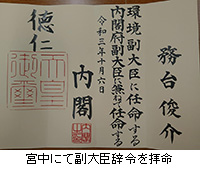 務台俊介
環境副大臣に任命する
内閣府副大臣に兼ねて任命する
令和三年十月六日
内閣
徳仁
天皇
御璽
宮中にて副大臣辞令を拝命